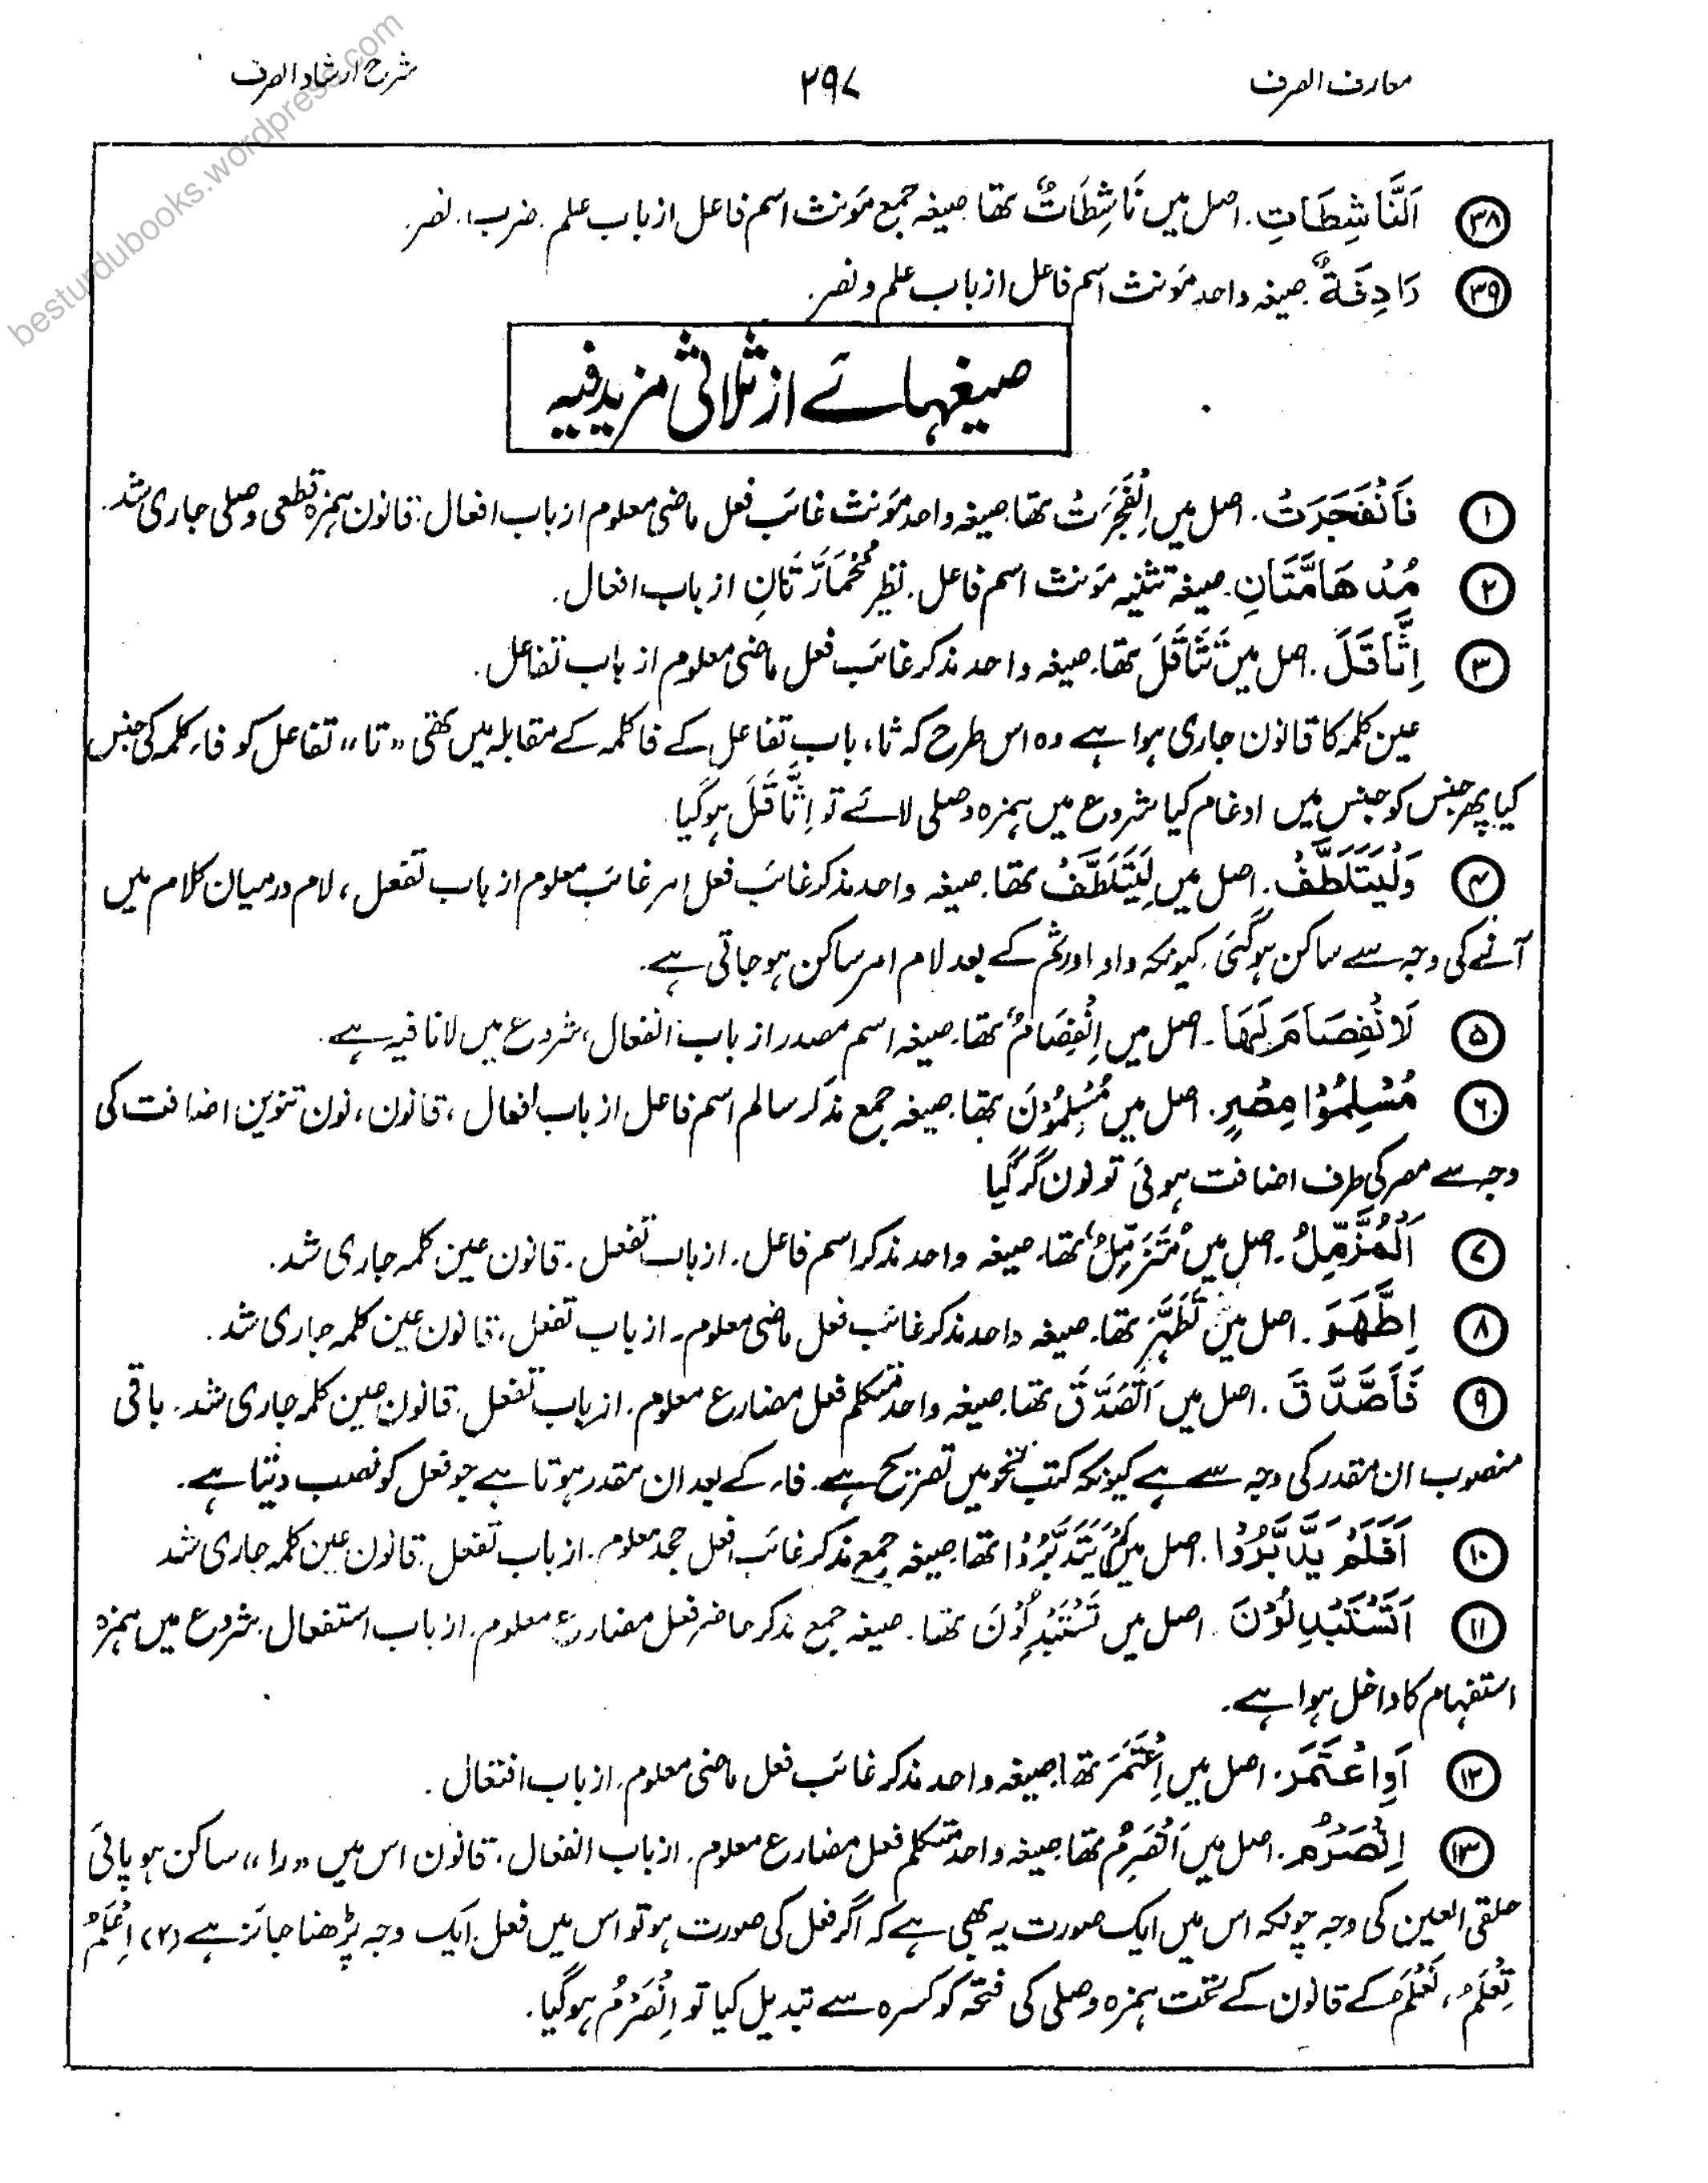 معارف الصرف
۲۹۷
شرح ارشاد الصرف
besturdubooks.wordpress.com
۳۸ اَلنَّاشِطَاتِ۔ اصل میں نَاشِطَاتٌ تھا۔ صیغہ جمع مؤنث اسم فاعل از باب علم۔ ضرب۔ نصر۔
۳۹ رَادِفَةٌ۔ صیغہ واحد مؤنث اسم فاعل از باب علم و نصر۔
صیغہائے از ثلاثی مزید فیہ
۱ فَانْفَجَرَتْ۔ اصل میں اِنْفَجَرَتْ تھا۔ صیغہ واحد مؤنث غائب فعل ماضی معلوم از باب افعال۔ قانون ہمزہ قطعی وصلی جاری شد۔
۲ مُدْهَامَّتَانِ۔ صیغہ تثنیہ مؤنث اسم فاعل۔ نظیر مُحْمَارَّتَانِ از باب افعال۔
۳ اِثَّاقَلَ۔ اصل میں تَثَاقَلَ تھا۔ صیغہ واحد مذکر غائب فعل ماضی معلوم از باب تفاعل۔
عین کلمہ کا قانون جاری ہوا ہے وہ اس طرح کہ ثا، باب تفاعل کے فا کلمہ کے مقابلہ میں تھی "تا" تفاعل کو فاء کلمہ کی جنس
کیا پھر جنس کو جنس میں ادغام کیا شروع میں ہمزہ وصلی لائے تو اِثَّاقَلَ ہو گیا
۴ وَلْیَتَلَطَّفْ۔ اصل میں لِیَتَلَطَّفْ تھا۔ صیغہ واحد مذکر غائب فعل امر غائب معلوم از باب تفعل، لام درمیان کلام میں
آنے کی وجہ سے ساکن ہو گئی۔ کیونکہ واو اور ثم کے بعد لام امر ساکن ہو جاتی ہے۔
۵ لَا نْفِصَامَ لَهَا۔ اصل میں اِنْفِصَامٌ تھا۔ صیغہ اسم مصدر از باب انفعال، شروع میں لا نافیہ ہے۔
۶ مُسْلِمُوْا مِصْرٍ۔ اصل میں مُسْلِمُوْنَ تھا۔ صیغہ جمع مذکر سالم اسم فاعل از باب افعال، قانون، نون تنوین اضافت کی
وجہ سے مصر کی طرف اضافت ہوئی تو نون گر گیا
۷ اَلْمُزَّمِّلُ۔ اصل میں مُتَزَمِّلٌ تھا۔ صیغہ واحد مذکر اسم فاعل۔ از باب تفعل۔ قانون عین کلمہ جاری شد۔
۸ اِطَّهَرَ۔ اصل میں تَطَهَّرَ تھا۔ صیغہ واحد مذکر غائب فعل ماضی معلوم۔ از باب تفعل، قانون عین کلمہ جاری شد۔
۹ فَاَصَّدَّقَ۔ اصل میں اَتَصَدَّقَ تھا۔ صیغہ واحد متکلم فعل مضارع معلوم۔ از باب تفعل۔ قانون عین کلمہ جاری شد۔ باقی
منصوب ان مقدر کی وجہ سے ہے کیونکہ کتب نحو میں تصریح ہے۔ فاء کے بعد ان مقدر ہوتا ہے جو فعل کو نصب دیتا ہے۔
۱۰ اَفَلَمْ یَدَّبَّرُوْا۔ اصل میں لَمْ یَتَدَبَّرُوْا تھا۔ صیغہ جمع مذکر غائب فعل جحد معلوم۔ از باب تفعل۔ قانون عین کلمہ جاری شد
۱۱ اَتَسْتَبْدِلُوْنَ۔ اصل میں تَسْتَبْدِلُوْنَ تھا۔ صیغہ جمع مذکر حاضر فعل مضارع معلوم۔ از باب استفعال۔ شروع میں ہمزہ
استفہام کا داخل ہوا ہے۔
۱۲ اَوِاعْتَمَرَ۔ اصل میں اِعْتَمَرَ تھا۔ صیغہ واحد مذکر غائب فعل ماضی معلوم۔ از باب افتعال۔
۱۳ اِنْصَرْمُ۔ اصل میں اَنْصَرِمُ تھا۔ صیغہ واحد متکلم فعل مضارع معلوم۔ از باب انفعال۔ قانون اس میں "را" ساکن ہو پائی
حلقی العین کی وجہ چونکہ اس میں ایک صورت یہ بھی ہے کہ اگر فعل کی صورت ہو تو اس میں فعل ایک وجہ پڑھنا جائز ہے (۲) اِعْلَمُ
تِعْلَمُ، نَعْلَمُ کے قانون کے تحت ہمزہ وصلی کی فتحہ کو کسرہ سے تبدیل کیا تو اِنْصَرْمُ ہو گیا۔